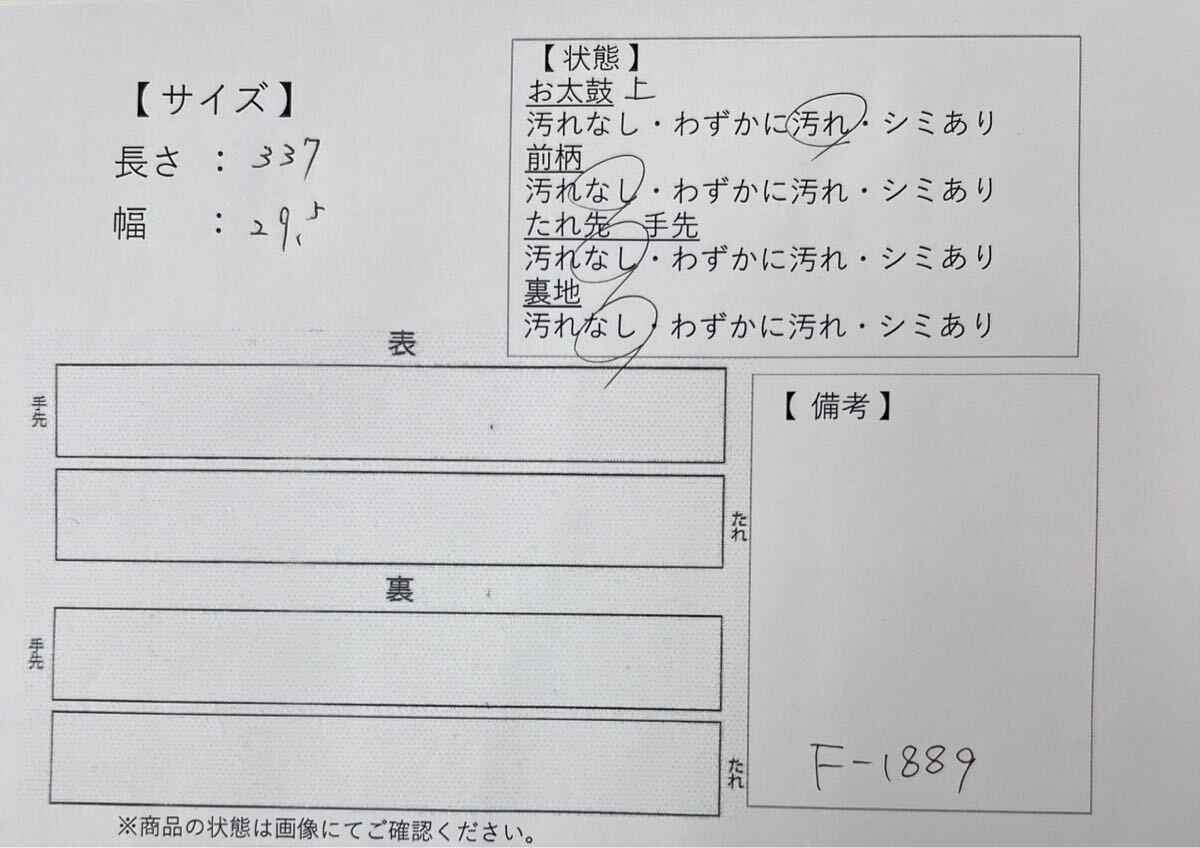 【 サイズ 】
長さ : 337
幅 : 29.5
【 状態 】
お太鼓 上
汚れなし・わずかに汚れ・シミあり
前柄
汚れなし・わずかに汚れ・シミあり
たれ先 手先
汚れなし・わずかに汚れ・シミあり
裏地
汚れなし・わずかに汚れ・シミあり
表
手先
たれ
裏
手先
たれ
※商品の状態は画像にてご確認ください。
【 備考 】
F-1889